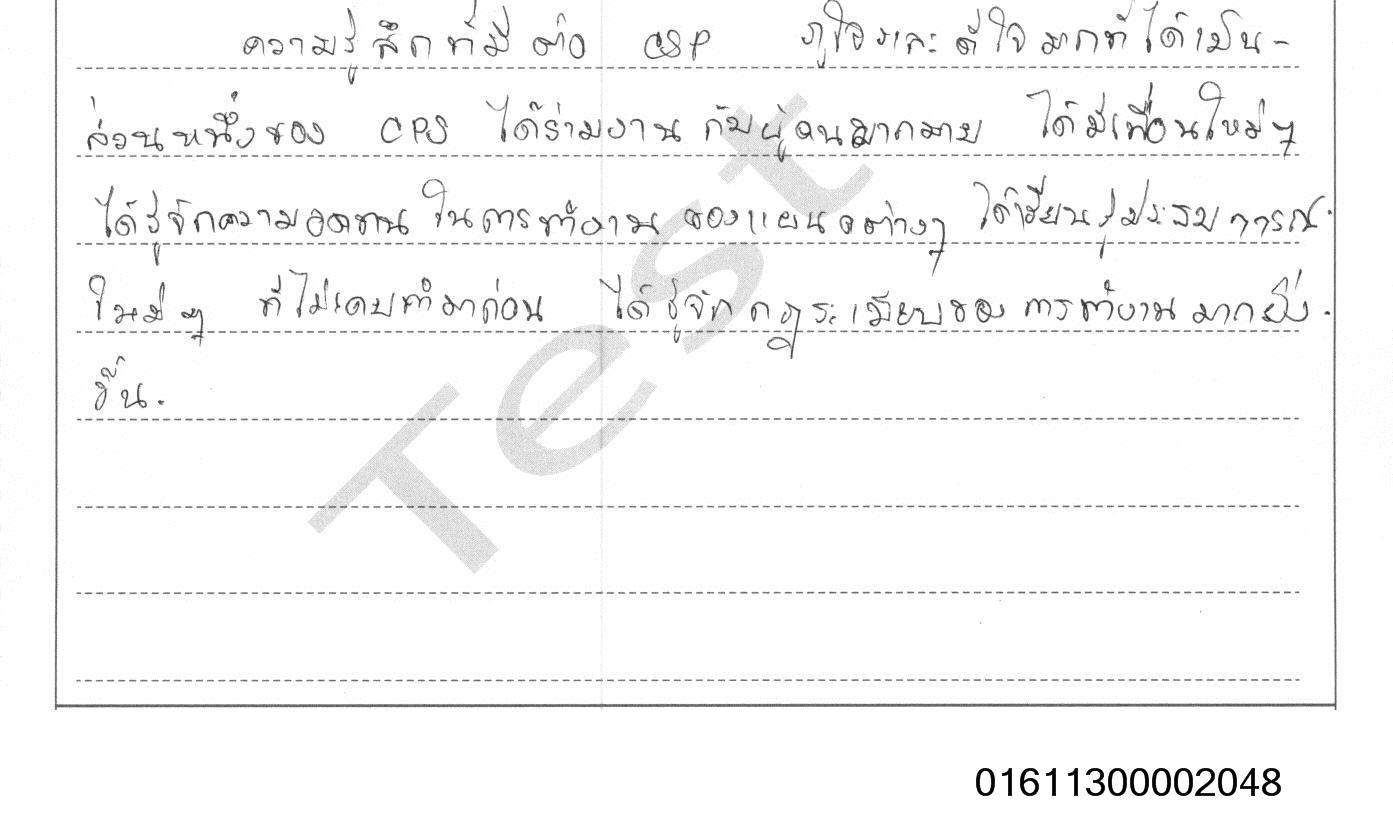 ความรู้สึกที่มีต่อ CSP ภูมิใจและดีใจมากที่ได้เป็น-
ส่วนหนึ่งของ CPS ได้ร่วมงานกับผู้คนมากมาย ได้มีเพื่อนใหม่ๆ
ได้รู้จักความอดทนในการทำงานของแผนกต่างๆ ได้เรียนรู้ประสบการณ์
ใหม่ๆ ที่ไม่เคยทำมาก่อน ได้รู้จักกฎระเบียบของการทำงานมากยิ่ง
ขึ้น.
Test
01611300002048